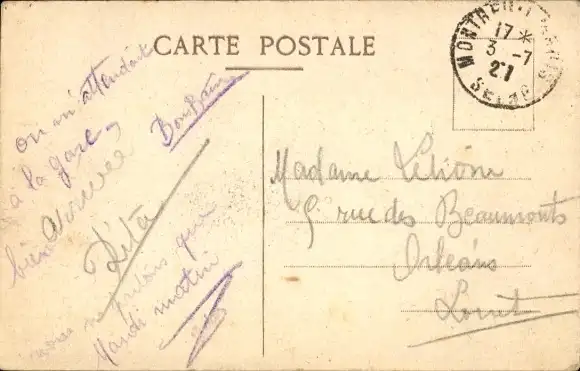 CARTE POSTALE
MONTREUIL
17 *
3 - 7
27
SEINE
on m'attendait
à la gare,
bien arrivée
Bons Baisers
Rita
nous ne partons que
Mardi matin
Madame
5 rue des Beaumonts
Orléans
Loiret